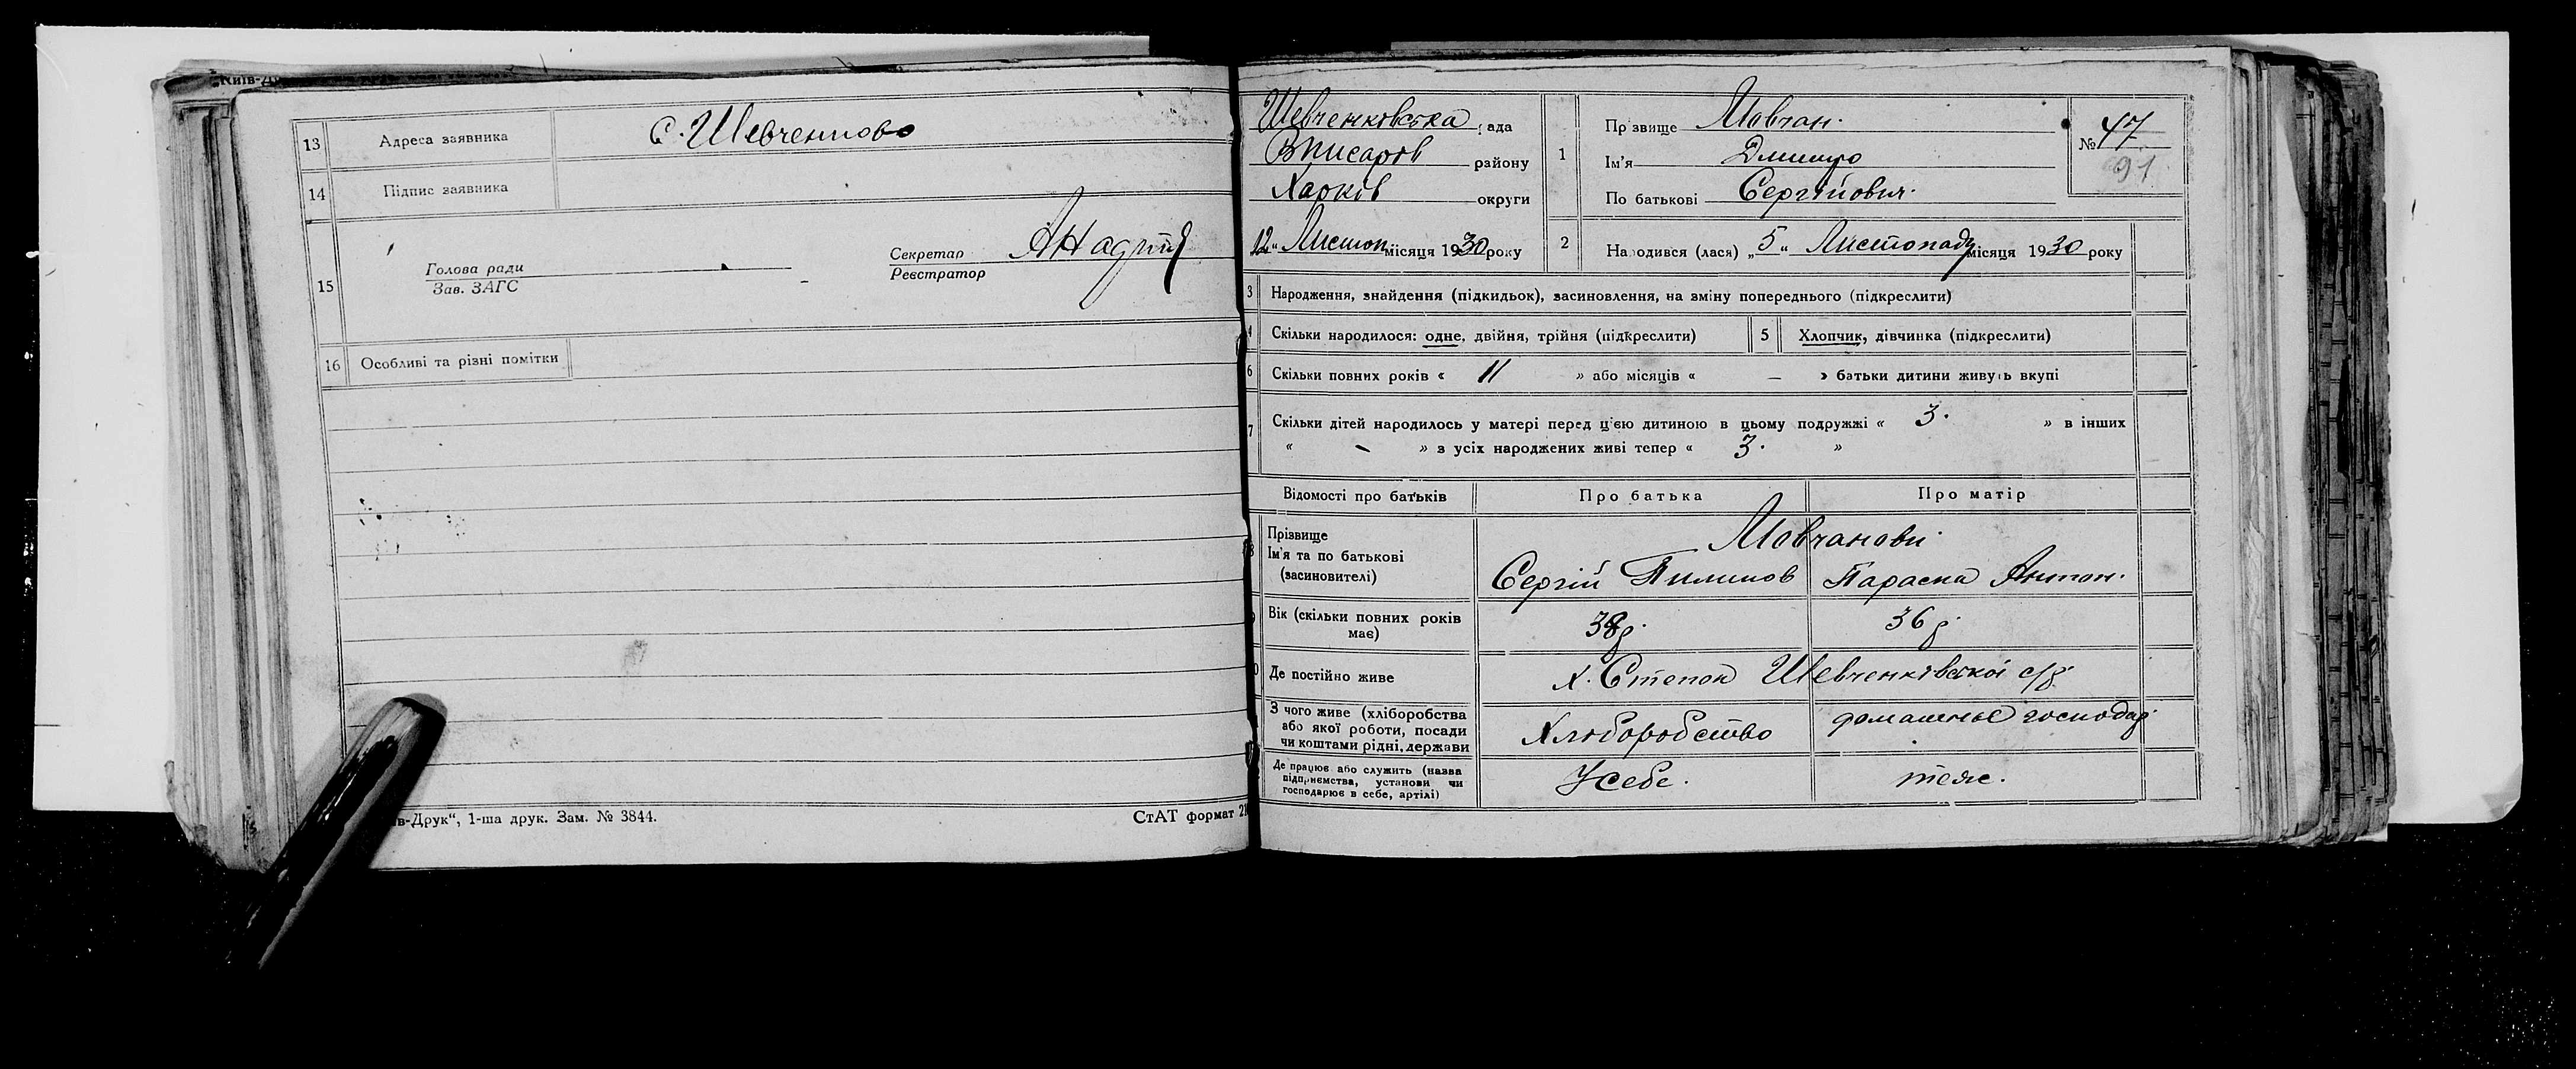 13 Адреса заявника С. Шевченково
14 Підпис заявника
15 Голова ради
Зав. ЗАГС
Секретар
Реєстратор
16 Особливі та різні помітки
в-Друк“, 1-ша друк. Зам. № 3844.
СтАТ формат
Шевченківська рада
району
Харків округи
12“ Листоп місяця 1930 року
1 Прізвище Мовчан.
Ім'я Дмитро
По батькові Сергійович.
№ 47
91
2 Народився (лася) „5“ Листопада місяця 1930 року
3 Народження, знайдення (підкидьок), засиновлення, на зміну попереднього (підкреслити)
4 Скільки народилося: одне, двійня, трійня (підкреслити)
5 Хлопчик, дівчинка (підкреслити)
6 Скільки повних років « 11 » або місяців « — » батьки дитини живуть вкупі
7 Скільки дітей народилось у матері перед цією дитиною в цьому подружжі « 3. » в інших
« – » з усіх народжених живі тепер « 3. »
Відомості про батьків Про батька Про матір
Прізвище
Ім'я та по батькові
(засиновителі)
Мовчанови
Сергій Пилипов Параска Антон.
Вік (скільки повних років
має)
38р. 36 р.
Де постійно живе х. Степок Шевченківської с/р
З чого живе (хліборобства
або якої роботи, посади
чи коштами рідні, держави
Хліборобство домашнє господар
Де працює або служить (назва
підприємства, установи чи
господарює в себе, артілі)
У себе. теж.